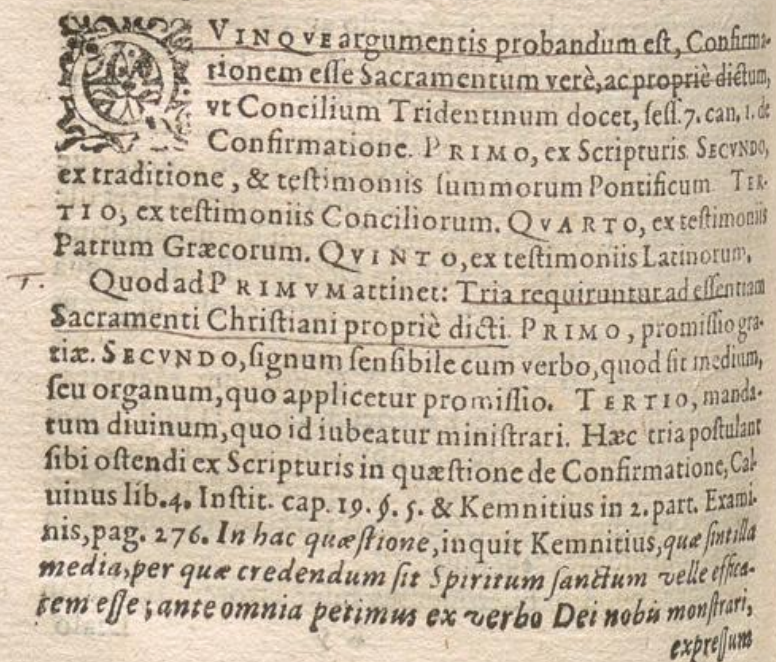 QVINQVE argumentis probandum eſt, Confirma-
tionem eſſe Sacramentum verè, ac propriè dictum,
vt Concilium Tridentinum docet, ſeſſ. 7. can. 1. de
Confirmatione. PRIMO, ex Scripturis. SECVNDO,
ex traditione, & teſtimoniis ſummorum Pontificum. TER-
TIO, ex teſtimoniis Conciliorum. QVARTO, ex teſtimoniis
Patrum Græcorum. QVINTO, ex teſtimoniis Latinorum.
Quod ad PRIMVM attinet: Tria requiruntur ad eſſentiam
Sacramenti Chriſtiani propriè dicti. PRIMO, promiſſio gra-
tiæ. SECVNDO, ſignum ſenſibile cum verbo, quod ſit medium,
ſeu organum, quo applicetur promiſſio. TERTIO, manda-
tum diuinum, quo id iubeatur miniſtrari. Hæc tria poſtulant
ſibi oſtendi ex Scripturis in quæſtione de Confirmatione, Cal-
uinus lib. 4. Inſtit. cap. 19. §. 5. & Kemnitius in 2. part. Exami-
nis, pag. 276. In hac quæſtione, inquit Kemnitius, quæ ſint illa
media, per quæ credendum ſit Spiritum ſanctum velle effica-
cem eſſe; ante omnia petimus ex verbo Dei nobis monſtrari,
expreſſum